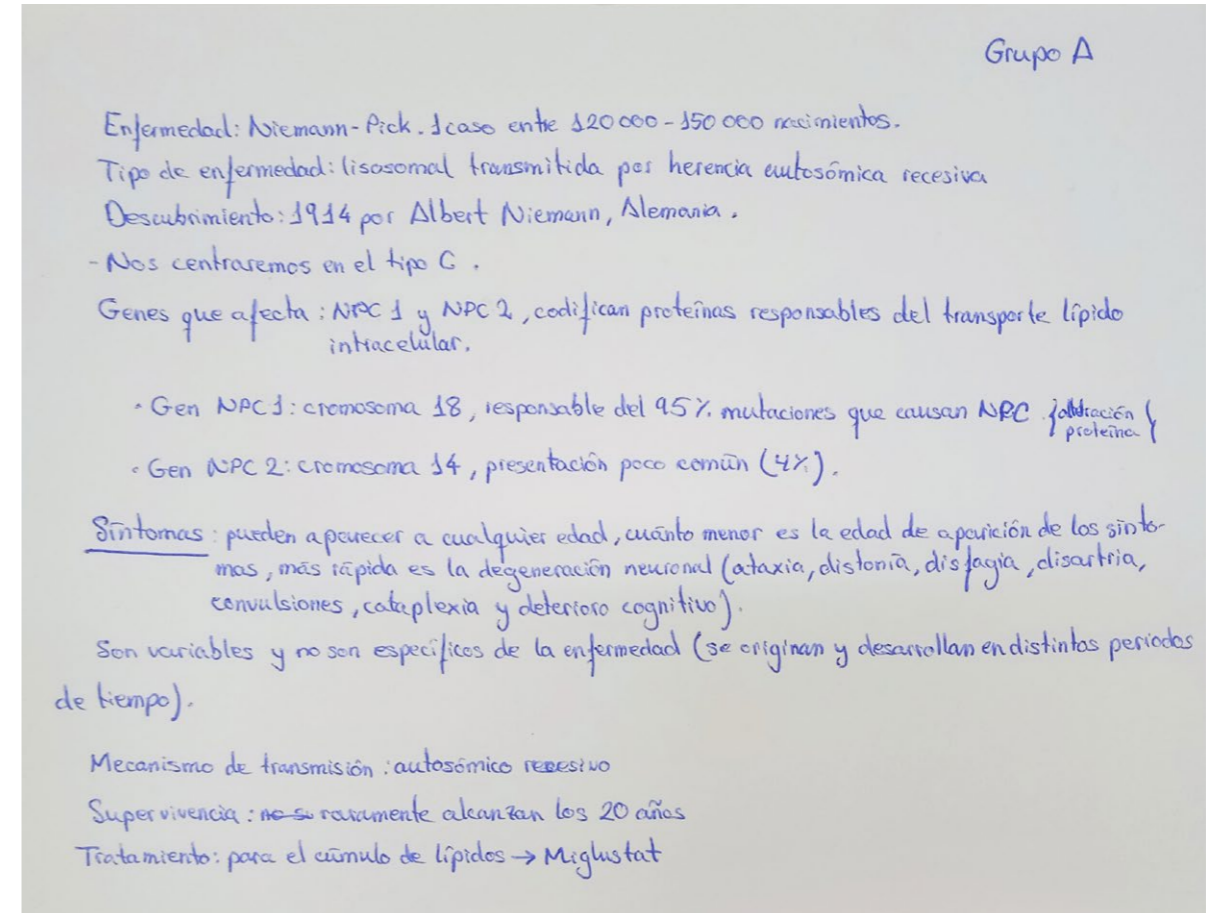 Grupo A
Enfermedad: Niemann-Pick. 1 caso entre 120 000 - 150 000 nacimientos.
Tipo de enfermedad: lisosomal transmitida por herencia autosómica recesiva
Descubrimiento: 1914 por Albert Niemann, Alemania.
- Nos centraremos en el tipo C.
Genes que afecta: NPC 1 y NPC 2, codifican proteínas responsables del transporte lípido
intracelular.
• Gen NPC1: cromosoma 18, responsable del 95% mutaciones que causan NPC. }alteración {
proteína
• Gen NPC 2: cromosoma 14, presentación poco común (4%).
Síntomas: pueden aparecer a cualquier edad, cuánto menor es la edad de aparición de los sínto-
mas, más rápida es la degeneración neuronal (ataxia, distonía, disfagia, disartria,
convulsiones, cataplexia y deterioro cognitivo).
Son variables y no son específicos de la enfermedad (se originan y desarrollan en distintos periodos
de tiempo).
Mecanismo de transmisión: autosómico recesivo
Supervivencia: no su raramente alcanzan los 20 años
Tratamiento: para el cúmulo de lípidos → Miglustat